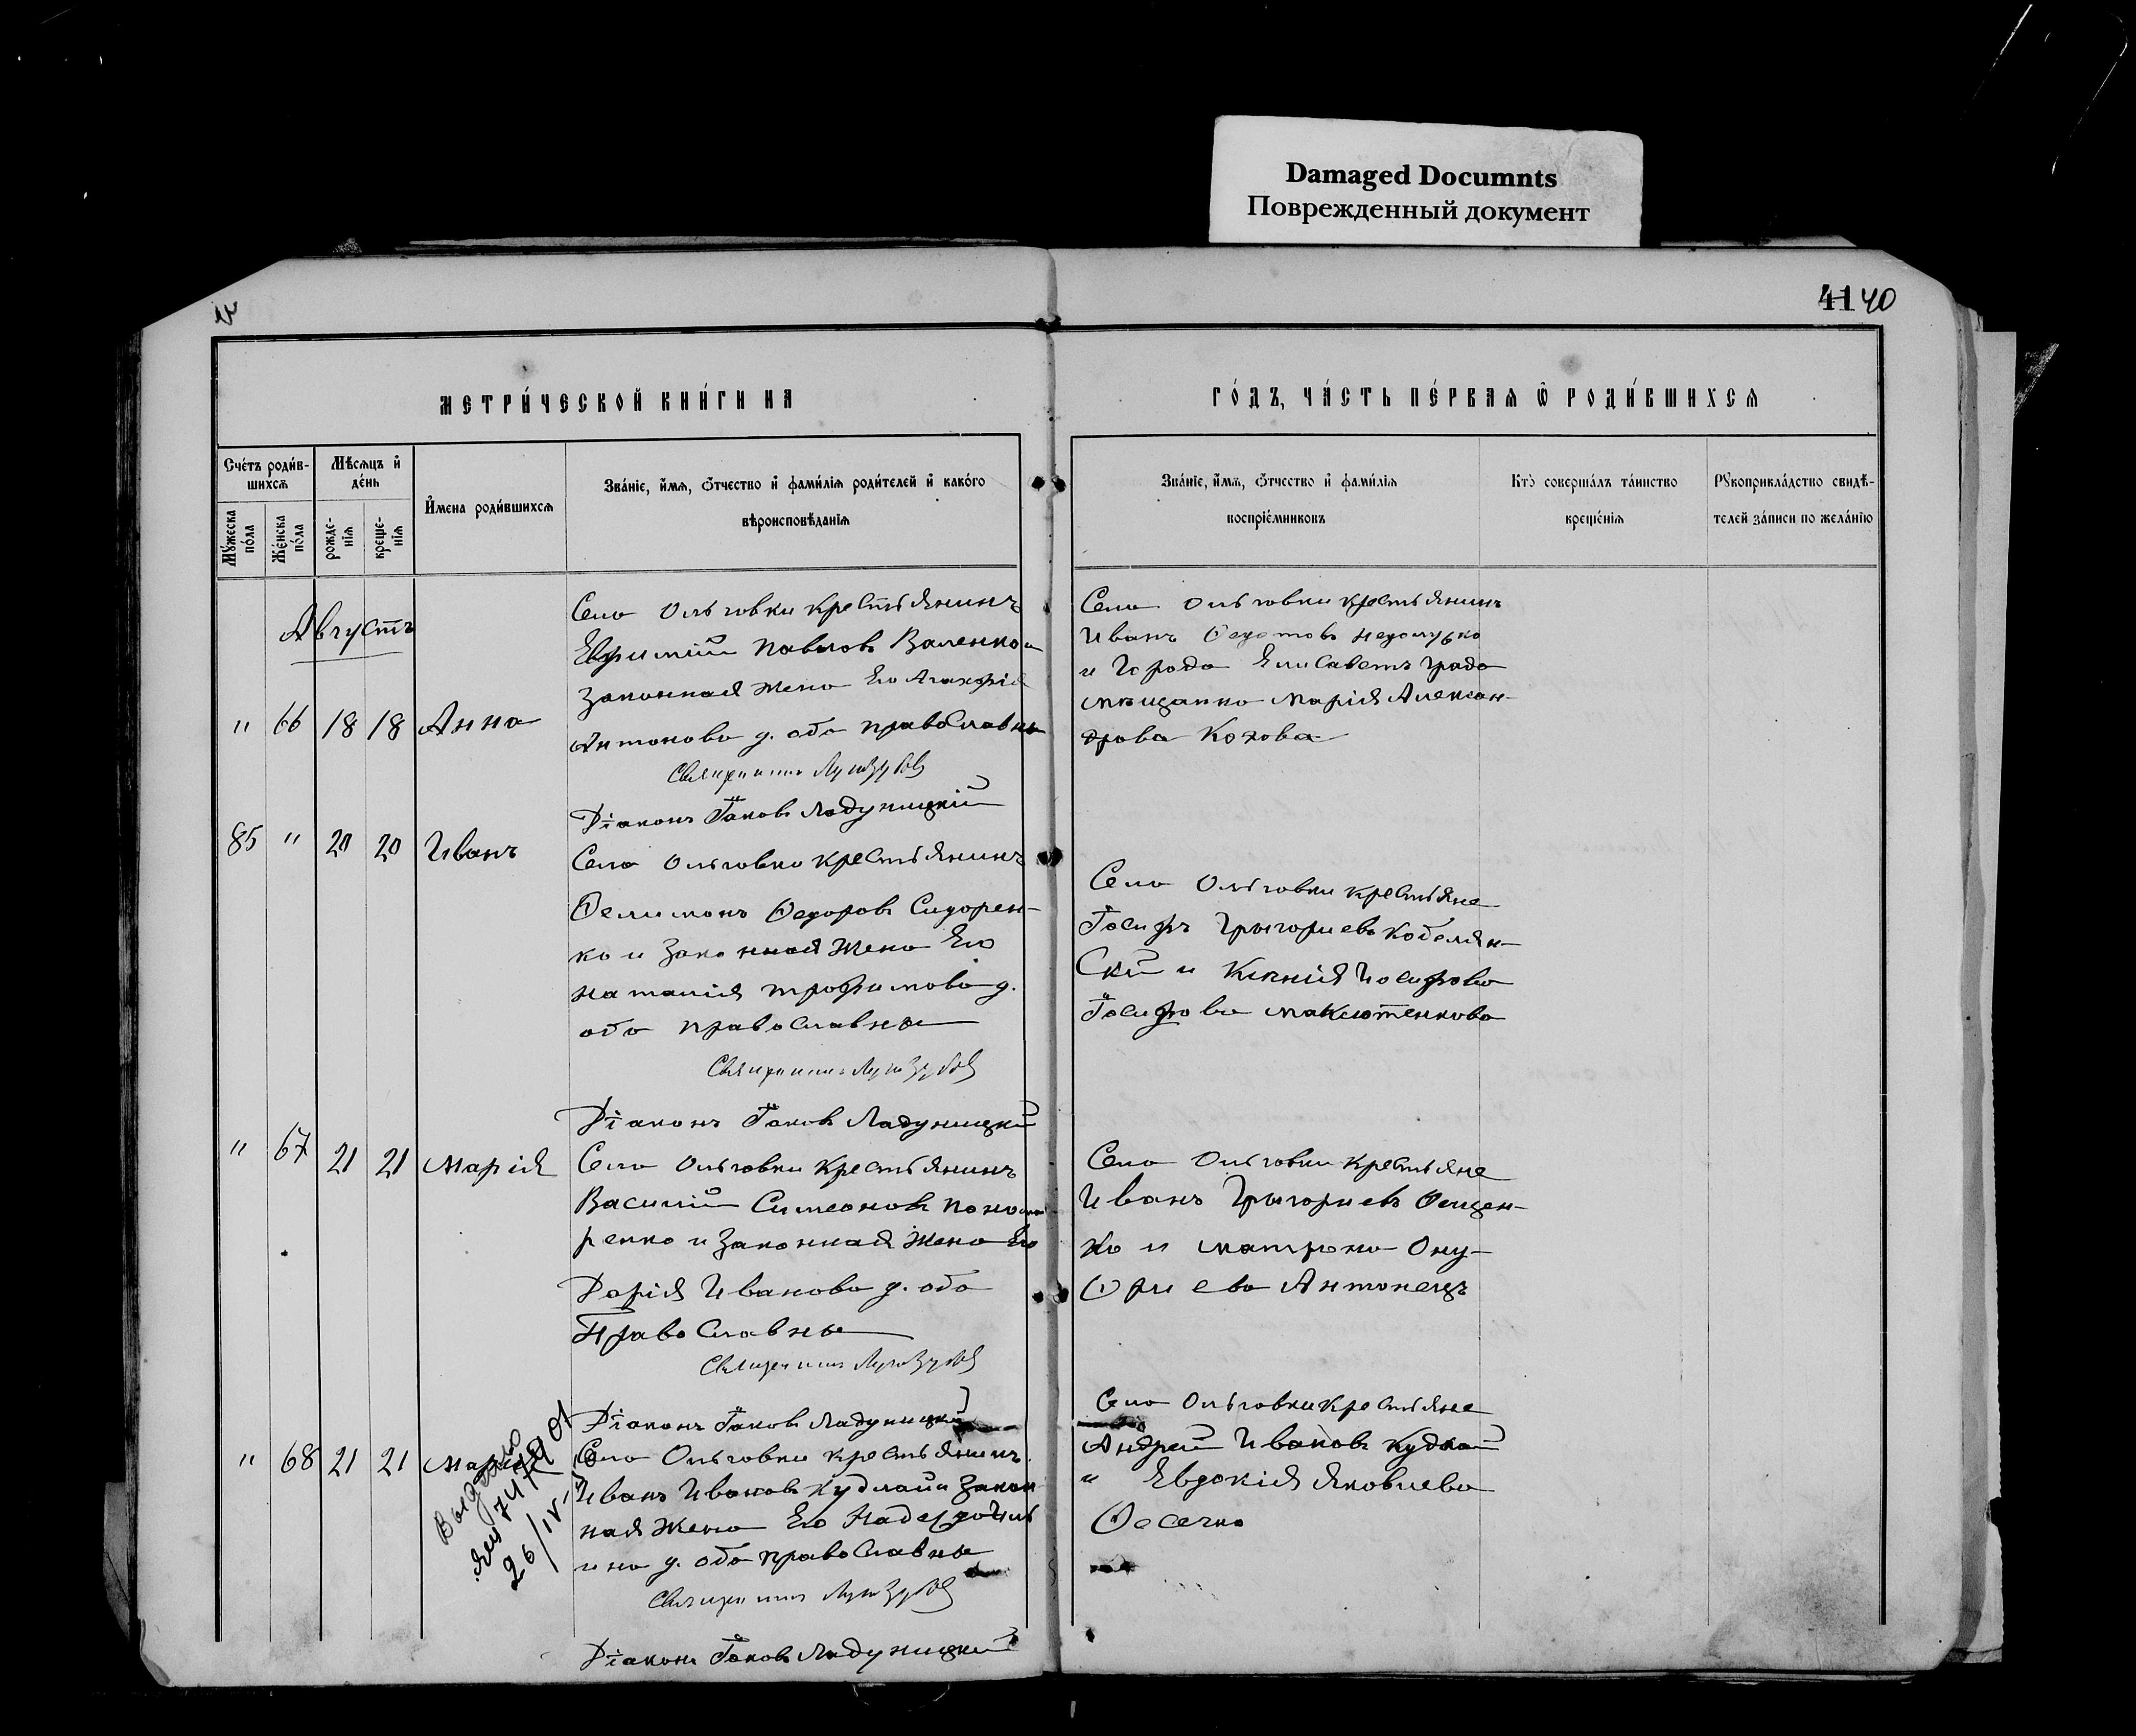 Damaged Documnts
Поврежденный документ
41 40
МЕТРИ́ЧЕСКОЙ КНИ́ГИ НА
ГО́ДЪ, ЧА́СТЬ ПЕ́РВАЯ Ѡ РОДИ́ВШИХСЯ
Сче́тъ роди́в-
шихсѧ
Мѣсѧцъ и҆
де́нь
И҆мена роди́вшихсѧ
Зва́нїе, и҆́мѧ, ѻ҆́тчество и҆ фами́лїѧ роди́телей и҆ како́го
вѣроисповѣ́данїѧ
Зва́нїе, и҆́мѧ, ѻ҆́тчество и҆ фами́лїѧ
воспрїе́мниковъ
Кто̀ соверша́лъ та́инство
креще́нїѧ
Рꙋкоприкла́дство свидѣ́-
телей за́писи по жела́нїю
Мꙋ́жеска
по́ла
Же́нска
по́ла
рожде-
нїѧ
креще-
нїѧ
Августъ
" 66 18 18 Анна
Село Ольговки крестьянинъ
Евфимій Павловъ Валенко и
законная жена Его Агафія
Антонова д. оба православны
Священникъ
Діаконъ Іаковъ Ладуницкій
Село Ольговки крестьянинъ
Иванъ Федотовъ
и Города Елисаветъ града
мѣщанка Марія Алексан-
дрова
85 " 20 20 Иванъ
Село Ольговки крестьянинъ
Филимонъ Федоровъ Сидорен-
ко и законная жена Его
Наталія Трофимова д.
оба православны
Священникъ
Діаконъ Іаковъ Ладуницкій
Село Ольговки крестьяне
Іосифъ Григориевъ Кобелян-
скій и Ксенія Иосифова
Іосифова
" 67 21 21 Марія
Село Ольговки крестьянинъ
Василій Симеоновъ Понома
ренко и законная жена Его
Дарія Иванова д. оба
Православны
Священникъ
Діаконъ Іаковъ Ладуницкій
Село Ольговки крестьяне
Иванъ Григориевъ Фещен-
ко и Матрона Ону-
фриева Антонецъ
" 68 21 21 Марія
Выдано
26/IV
Село Ольговки крестьянинъ
Иванъ Ивановъ Кудлай и закон
ная жена Его
ина д. оба православны
Священникъ
Діаконъ Іаковъ Ладуницкій
Село Ольговки крестьяне
Андрей Ивановъ Кудлай
и Евдокія Яковлева